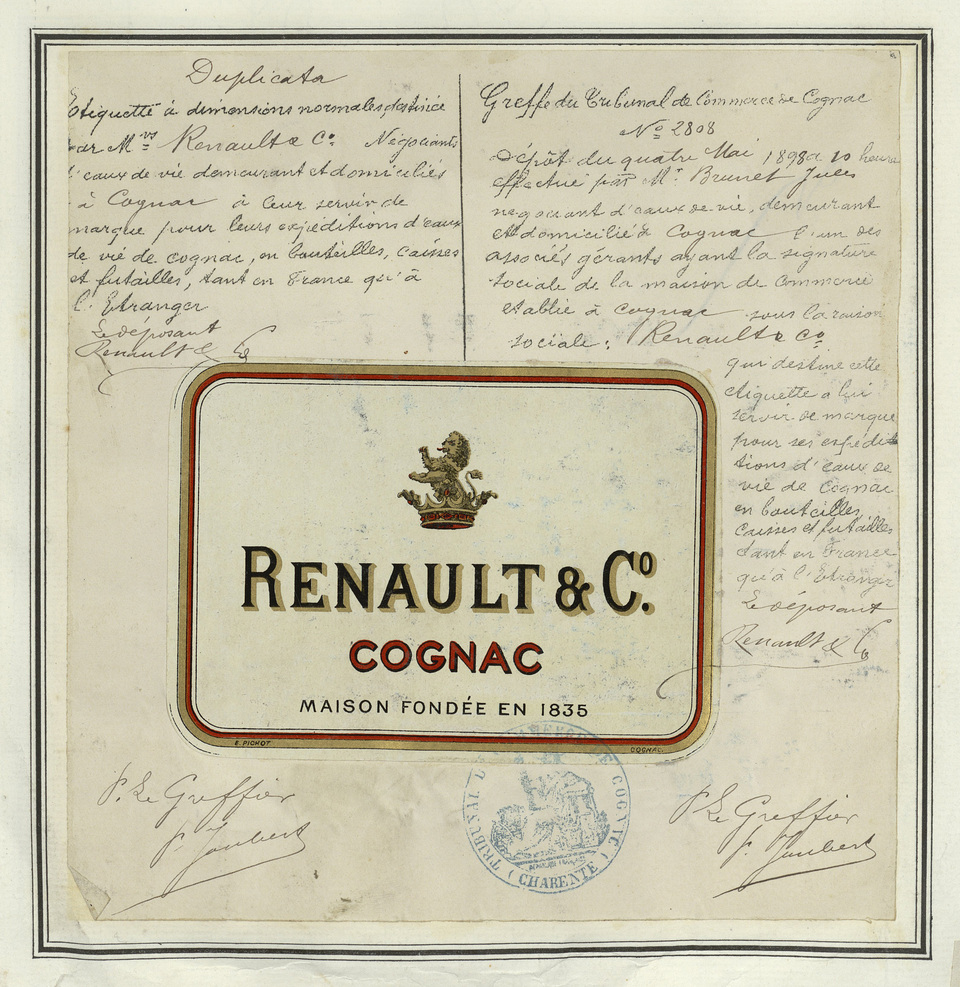 Duplicata
Etiquette à dimensions normales, destinée
par Mrs Renault & Co. Négociants
d'eaux de vie demeurant et domiciliés
à Cognac à leur servir de
marque pour leurs expéditions d'eaux
de vie de cognac, en bouteilles, caisses
et futailles, tant en France qu'à
l'Etranger
Le déposant
Renault & Co
Greffe du Tribunal de Commerce de Cognac
No 2808
Dépôt du quatre Mai 1898 à 10 heures
effectué par Mr. Brunet Jules
négociant d'eaux-de-vie, demeurant
et domicilié à Cognac l'un des
associés gérants ayant la signature
sociale de la maison de commerce
établie à Cognac sous la raison
sociale: Renault & Co.
qui destine cette
étiquette à lui
servir de marque
pour ses expédi-
tions d'eaux de
vie de Cognac
en bouteilles,
caisses et futailles
tant en France
qu'à l'Etranger
Le déposant
Renault & Co
RENAULT & Co.
COGNAC
MAISON FONDÉE EN 1835
E. PICHOT
COGNAC.
TRIBUNAL DE COMMERCE DE COGNAC
(CHARENTE)
P. Le Greffier
P. Le Greffier
F. Joubert
F. Joubert